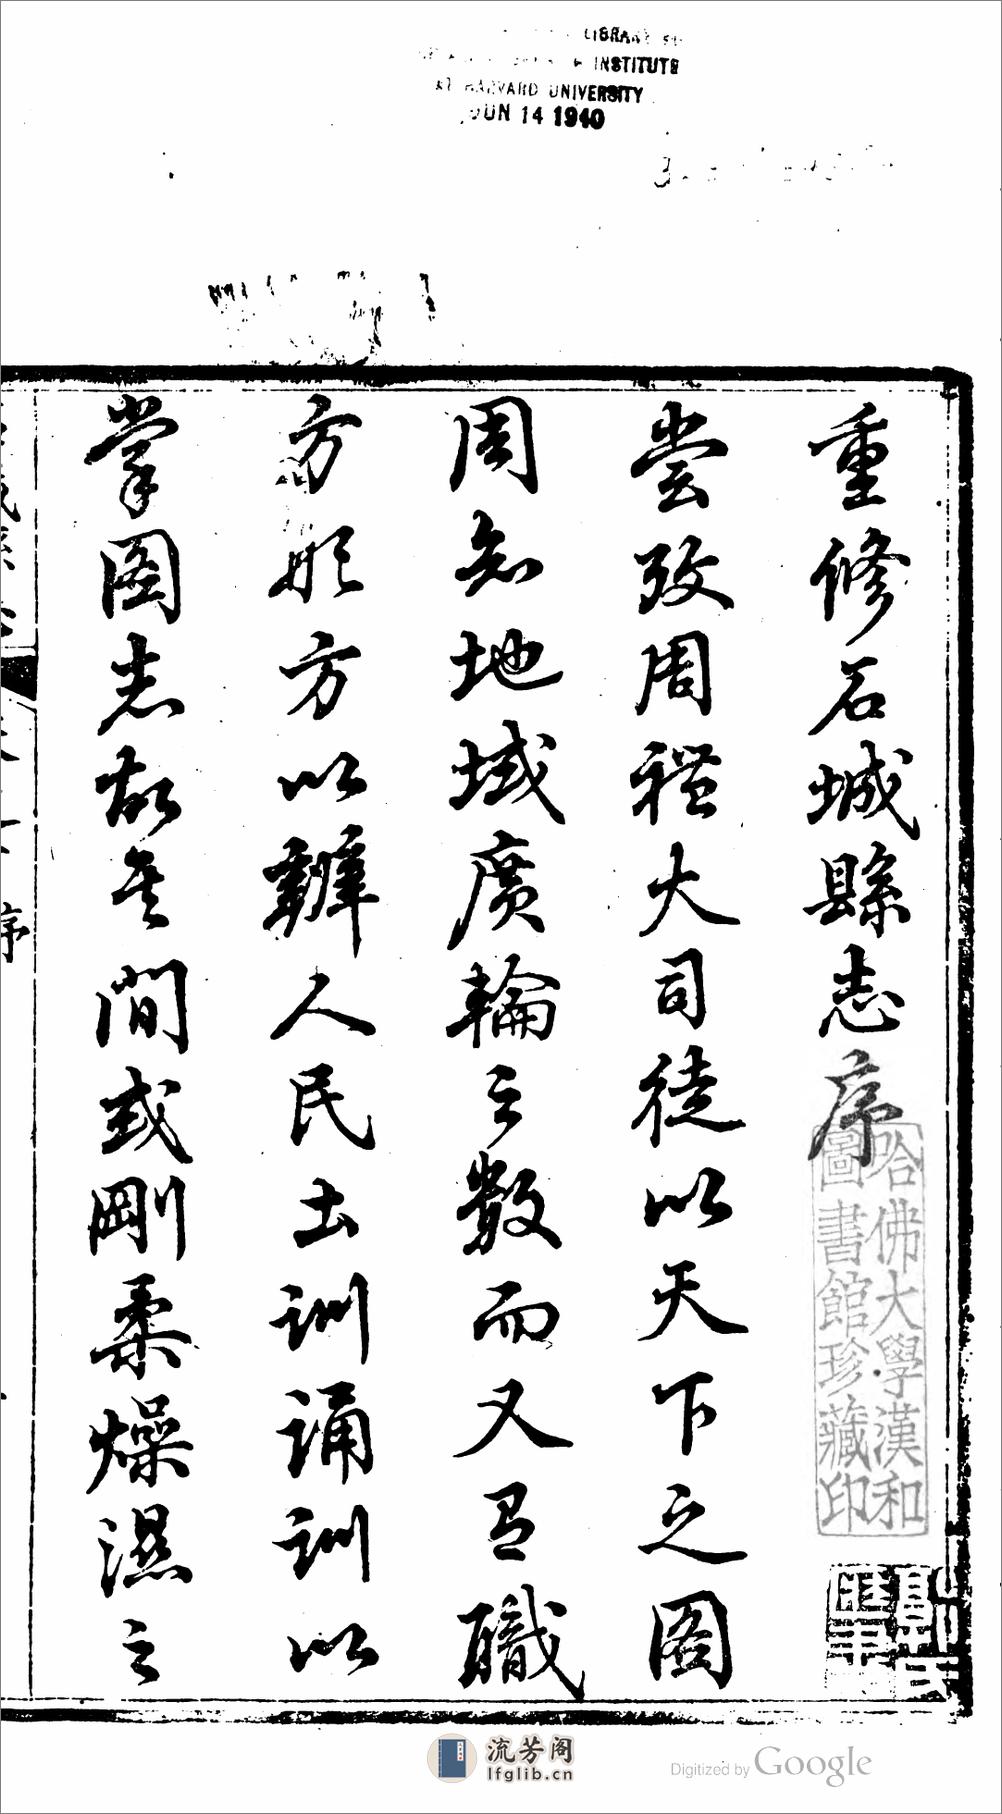 LIBRARY
INSTITUTE
HARVARD UNIVERSITY
JUN 14 1940
重修石城縣志序
嘗攷周禮大司徒以天下之图
周知地域廣輪之數而又有職
方形方以辨人民土訓誦訓以
掌图志故其間或剛柔燥濕之
序
哈佛大學漢和
圖書館珍藏印
流芳阁
lfglib.cn
Digitized by Google